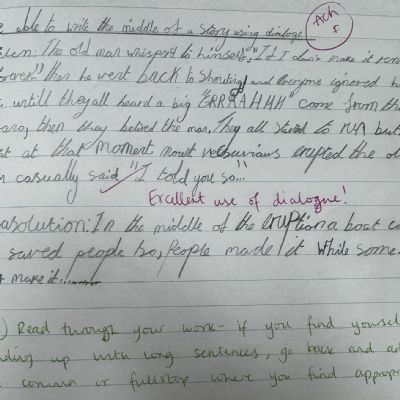 able to write the middle of a story using dialoge
Ach
The old man whisperd to himself, "If I don't make it rem
then he went back to shouting and everyone ignored h
untill they all heard a big "GRRRAHHH" come from the
then they belived the man, They all stared to run but
at that moment mount vesbuvious erupted the ol
casually said "I told you so..."
Excellent use of dialogue!
In the middle of the eruption a boat c
saved people so, People made it while some
make it......
Read through your work- if you find yoursel
ding up with long sentences, go back and ad
comma or fullstop where you find approp